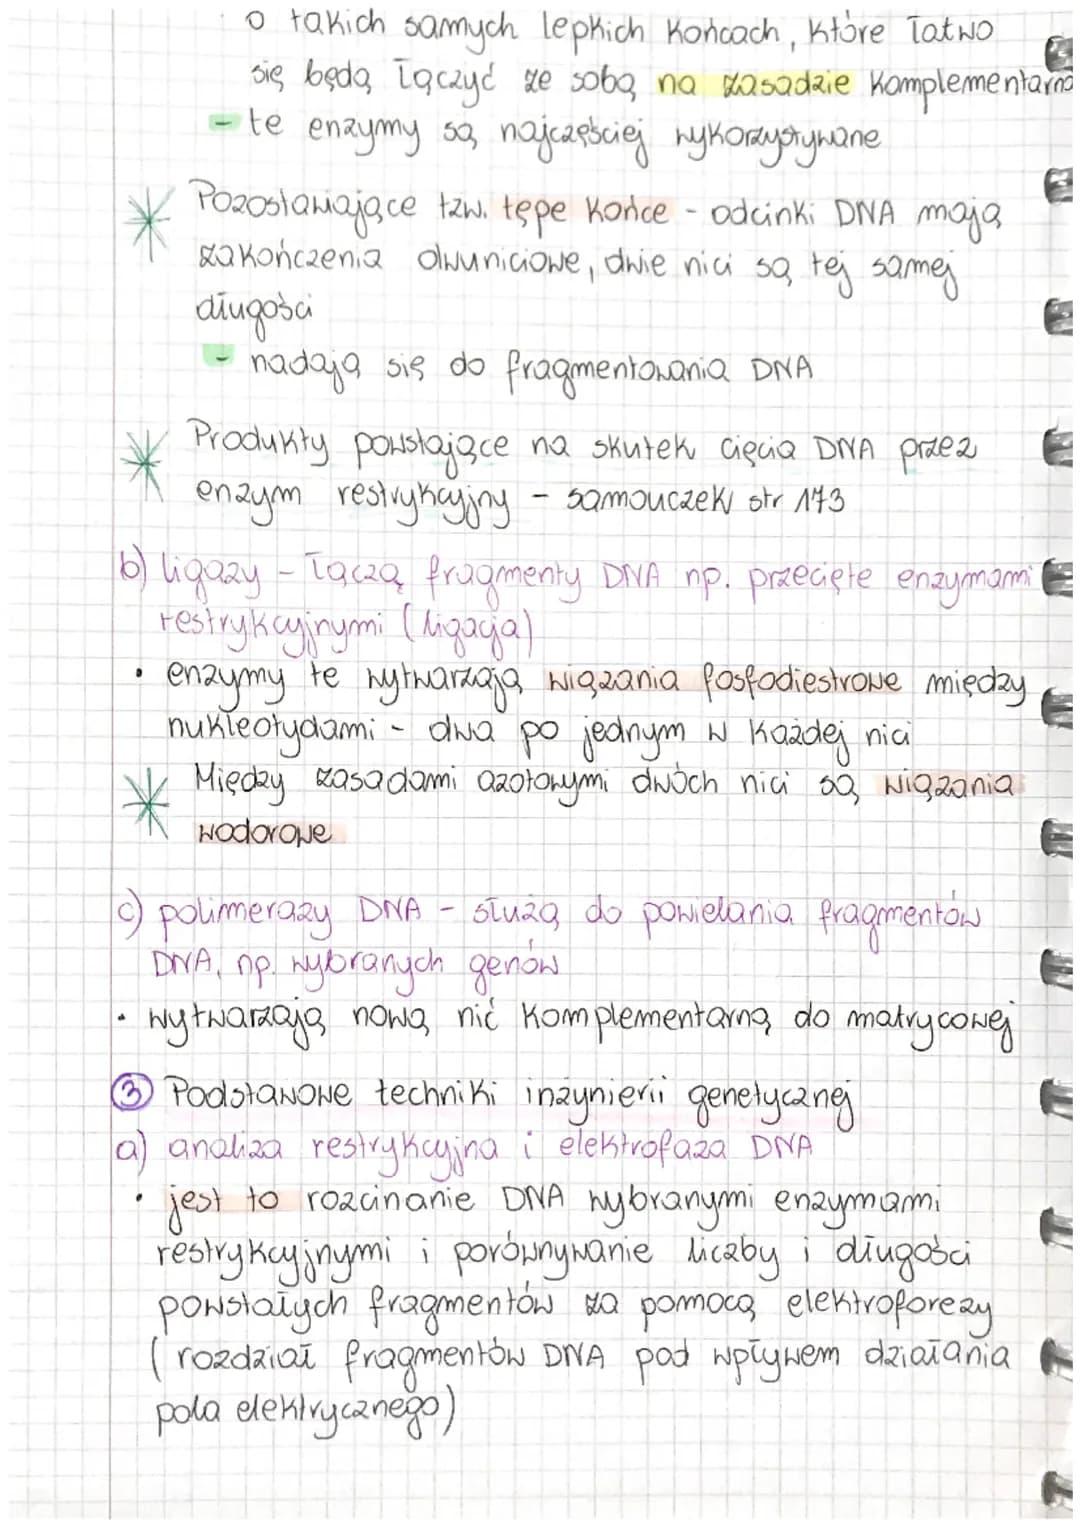 o takich samych lepkich końcach, które łatwo
się będą łączyć ze sobą na zasadzie komplementarno
- te enzymy są najczęściej wykorzystywane
Pozostawiające tzw. tępe końce - odcinki DNA mają
zakończenia dwuniciowe, dwie nici są tej samej
długości
- nadają się do fragmentowania DNA
Produkty powstające na skutek cięcia DNA przez
enzym restrykcyjny - samouczek str 173
b) ligazy - łączą fragmenty DNA np. przecięte enzymami
restrykcyjnymi (ligacja)
• enzymy te wytwarzają wiązania fosfodiestrowe między
nukleotydami - dwa po jednym w każdej nici
Między zasadami azotowymi dwóch nici są wiązania
wodorowe
c) polimerazy DNA - służą do powielania fragmentów
DNA, np. wybranych genów
• wytwarzają nową nić komplementarną do matrycowej
3 Podstawowe techniki inżynierii genetycznej
a) analiza restrykcyjna i elektrofaza DNA
• jest to rozcinanie DNA wybranymi enzymami
restrykcyjnymi i porównywanie liczby i długości
powstałych fragmentów za pomocą elektroforezy
(rozdział fragmentów DNA pod wpływem działania
pola elektrycznego)